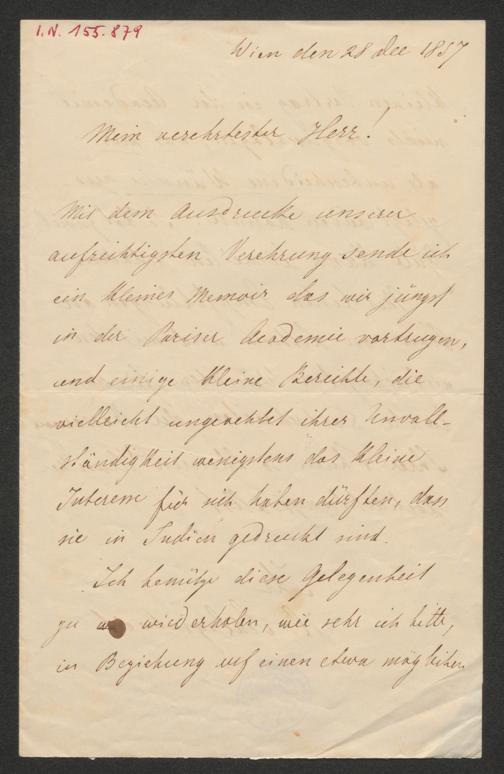 I.N. 155.879
Wien den 28 Dec 1857
Mein verehrtester Herr!
Mit dem Ausdrucke unserer
aufrichtigsten Verehrung sende ich
ein kleines Memoir das wir jüngst
in der Pariser Academie vortrugen,
und einige kleine Berichte, die
vielleicht ungeachtet ihrer Unvoll-
ständigkeit wenigstens das kleine
Interesse für sich haben dürften, dass
sie in Indien gedruckt sind.
Ich benütze diese Gelegenheit
zu wiederholen, wie sehr ich bitte,
in Beziehung auf einen etwa möglichen